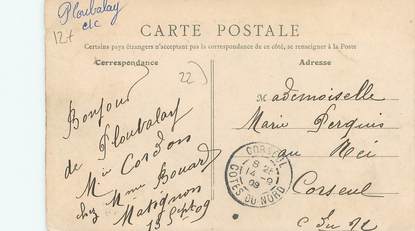 Ploubalay
etc
12+
CARTE POSTALE
Certains pays étrangers n'acceptent pas la correspondance de ce côté, se renseigner à la Poste
Correspondance
Adresse
22)
Bonjour
de Ploubalay
Mlle Cordon
chez Mme Bouard
Matignon
13 Sept 09
Mademoiselle
Marie Perquis
au
Corseul
C du N
CORSEUL
8
14 -9
09
COTES DU NORD